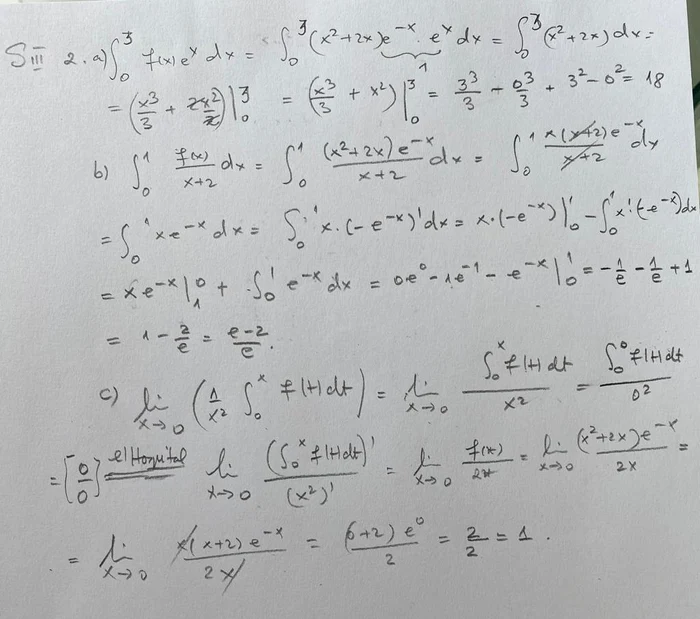 SIII 2. a) ∫₀³ f(x) eˣ dx = ∫₀³ (x²+2x) e⁻ˣ · eˣ dx = ∫₀³ (x²+2x) dx =
1
= (x³/3 + 2x²/2) |₀³ = (x³/3 + x²) |₀³ = 3³/3 - 0³/3 + 3² - 0² = 18
b) ∫₀¹ f(x)/(x+2) dx = ∫₀¹ (x²+2x) e⁻ˣ/(x+2) dx = ∫₀¹ x(x+2) e⁻ˣ/(x+2) dx
= ∫₀¹ x e⁻ˣ dx = ∫₀¹ x · (-e⁻ˣ)' dx = x · (-e⁻ˣ) |₀¹ - ∫₀¹ x' · (-e⁻ˣ) dx
= x e⁻ˣ |₁⁰ + ∫₀¹ e⁻ˣ dx = 0e⁰ - 1e⁻¹ - e⁻ˣ |₀¹ = -1/e - 1/e + 1
= 1 - 2/e = (e-2)/e .
c) lim x→0 (1/x² ∫₀ˣ f(t) dt) = lim x→0 ∫₀ˣ f(t) dt / x² = ∫₀⁰ f(t) dt / 0²
= [0/0] el Hospital lim x→0 (∫₀ˣ f(t) dt)' / (x²)' = lim x→0 f(x)/2x = lim x→0 (x²+2x) e⁻ˣ / 2x =
= lim x→0 x(x+2) e⁻ˣ / 2x = (0+2) e⁰ / 2 = 2/2 = 1 .